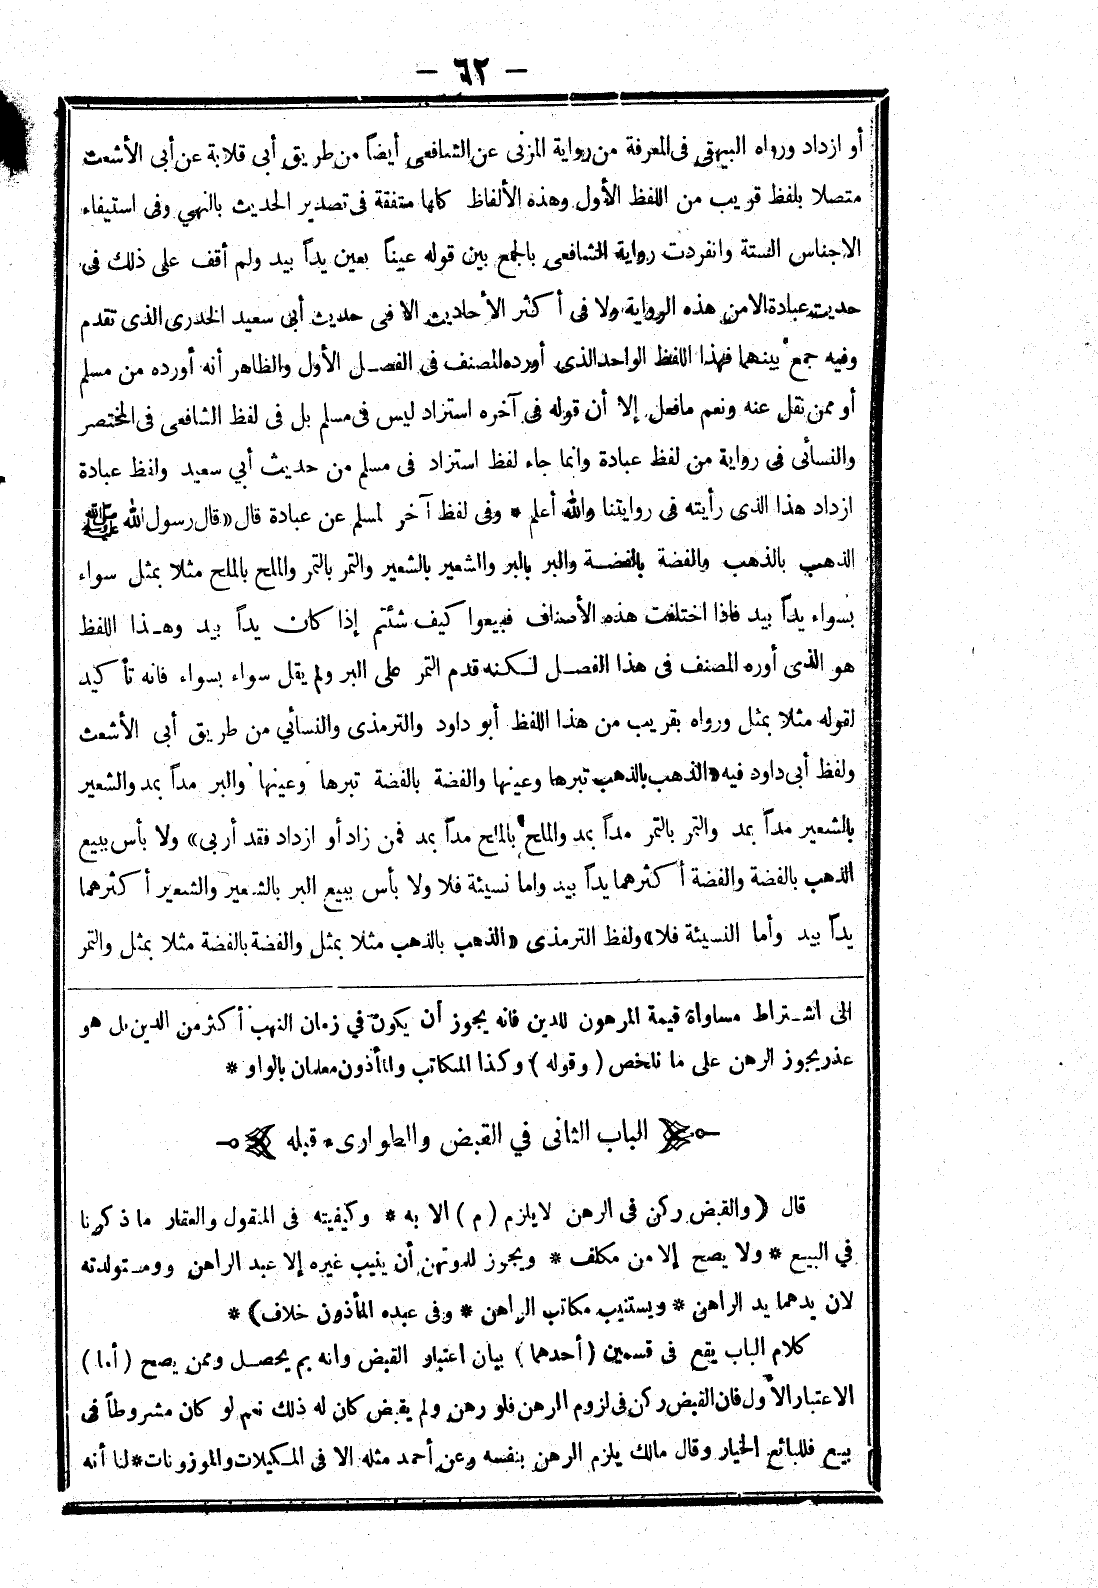 – ٦٢ –
أو ازداد ورواه البيهقى فى المعرفة من رواية المزنى عن الشافعى أيضاً من طريق أبى قلابة عن أبى الأشعث
متصلا بلفظ قريب من اللفظ الأول وهذه الألفاظ كلها متفقة فى تصدير الحديث بالنهي وفى استيفاء
الاجناس الستة وانفردت رواية الشافعى بالجمع بين قوله عيناً بعين يداً بيد ولم أقف على ذلك فى
حديث عبادة الا من هذه الرواية ولا فى أكثر الأحاديث الا فى حديث أبى سعيد الخدرى الذى تقدم
وفيه جمع بينهما فهذا اللفظ الواحد الذى أورده المصنف فى الفصـل الأول والظاهر أنه أورده من مسلم
أو ممن نقل عنه ونعم مافعل إلا أن قوله فى آخره استزاد ليس فى مسلم بل فى لفظ الشافعى فى المختصر
والنسأئى فى رواية من لفظ عبادة وانما جاء لفظ استزاد فى مسلم من حديث أبي سعيد ولفظ عبادة
ازداد هذا الذى رأيته فى روايتنا والله أعلم * وفى لفظ آخر لمسلم عن عبادة قال «قال رسول الله ﷺ
الذهب بالذهب والفضة بالفضـة والبر بالبر والشعير بالشعير والتمر بالتمر والملح بالملح مثلا بمثل سواء
بسواء يداً بيد فاذا اختلفت هذه الأصناف فبيعوا كيف شئتم إذا كان يداً بيد وهـذا اللفظ
هو الذى أوره المصنف فى هذا الفصـل لـكنه قدم التمر على البر ولم يقل سواء بسواء فانه تأكيد
لقوله مثلا بمثل ورواه بقريب من هذا اللفظ أبو داود والترمذى والنسائي من طريق أبى الأشعث
ولفظ أبى داود فيه «الذهب بالذهب تبرها وعينها والفضة بالفضة تبرها وعينها والبر مداً بمد والشعير
بالشعير مداً بمد والتمر بالتمر مداً بمد والملح بالملح مداً بمد فمن زاد أو ازداد فقد أربى» ولا بأس ببيع
الذهب بالفضة والفضة أكثرهما يداً بيد واما نسيئة فلا ولا بأس ببيع البر بالشعير والشعير أكثرهما
يداً بيد وأما النسيئة فلا» ولفظ الترمذى «الذهب بالذهب مثلا بمثل والفضة بالفضة مثلا بمثل والتمر
الى اشـتراط مساواة قيمة المرهون للدين فانه يجوز أن يكون في زمان النهب أكثر من الدين بل هو
عذر يجوز الرهن على ما تلخص (وقوله) وكذا المكاتب والمأذون معلمان بالواو *
الباب الثانى في القبض والطوارىء قبله
قال (والقبض ركن فى الرهن لا يلزم (م) الا به * وكيفيته فى المنقول والعقار ما ذكرنا
في البيع * ولا يصح إلا من مكلف * ويجوز للمرتهن أن ينيب غيره إلا عبد الراهن ومستولدته
لان يدهما يد الراهن * ويستنيب مكاتب الراهن * وفى عبده المأذون خلاف) *
كلام الباب يقع فى قسمين (أحدهما) بيان اعتبار القبض وانه بم يحصـل وممن يصح (أما)
الاعتبار الأول فان القبض ركن فى لزوم الرهن فلو رهن ولم يقبض كان له ذلك نعم لو كان مشروطاً فى
بيع فللبائع الخيار وقال مالك يلزم الرهن بنفسه وعن أحمد مثله الا فى المكيلات والموزونات * لنا أنه